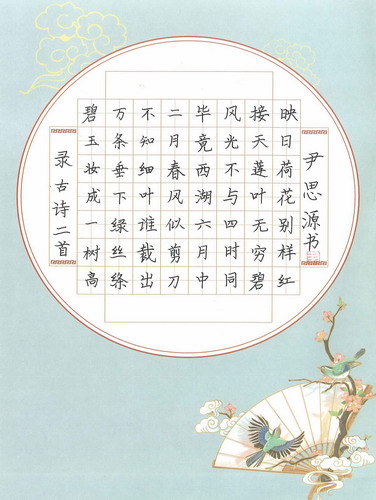 录古诗二首
碧玉妆成一树高
万条垂下绿丝绦
不知细叶谁裁出
二月春风似剪刀
毕竟西湖六月中
风光不与四时同
接天莲叶无穷碧
映日荷花别样红
尹思源书